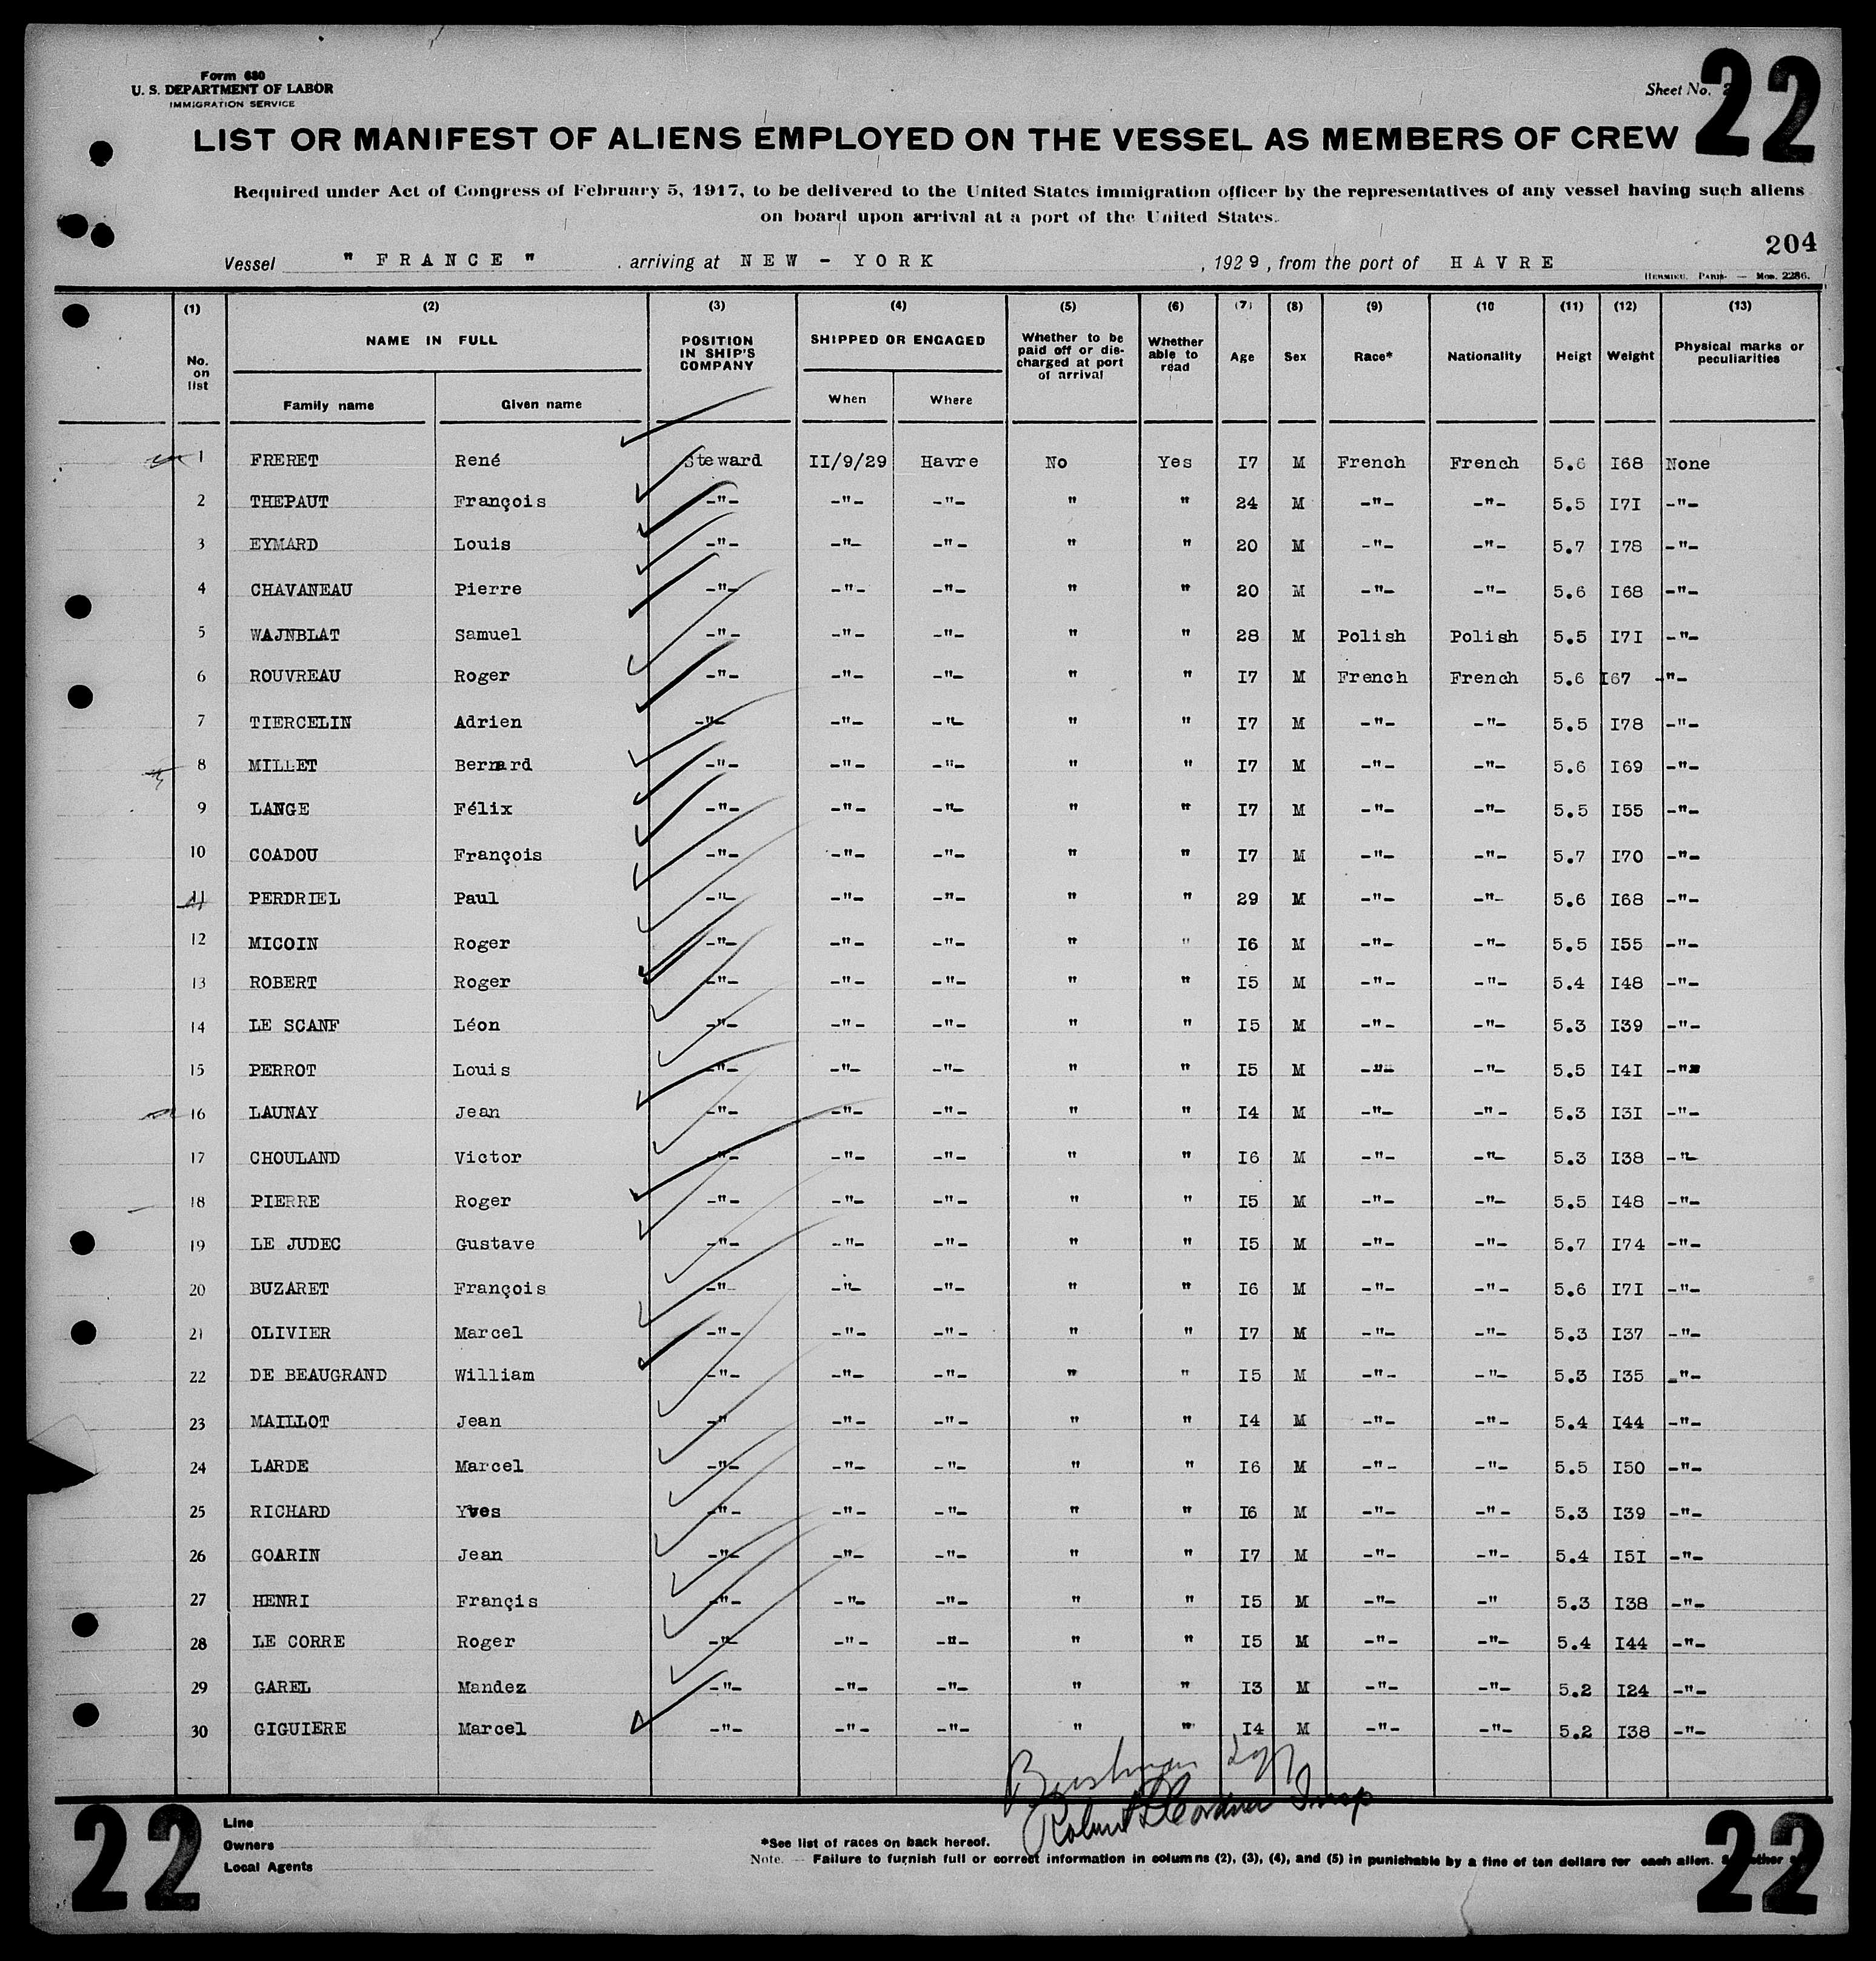 22
Form 680
U. S. DEPARTMENT OF LABOR
IMMIGRATION SERVICE
Sheet No.
LIST OR MANIFEST OF ALIENS EMPLOYED ON THE VESSEL AS MEMBERS OF CREW
Required under Act of Congress of February 5, 1917, to be delivered to the United States immigration officer by the representatives of any vessel having such aliens
on board upon arrival at a port of the United States.
204
Vessel " FRANCE " . arriving at NEW - YORK , 1929 , from the port of HAVRE
HERMIEU, PARIS. — Mod. 2286.
(1) (2) (3) (4) (5) (6) (7) (8) (9) (10 (11) (12) (13)
No. on list NAME IN FULL POSITION IN SHIP'S COMPANY SHIPPED OR ENGAGED Whether to be paid off or dis-charged at port of arrival Whether able to read Age Sex Race* Nationality Heigt Weight Physical marks or peculiarities
Family name Given name When Where
1 FRERET René Steward II/9/29 Havre No Yes I7 M French French 5.6 I68 None
2 THEPAUT François -"- -"- -"- " " 24 M -"- -"- 5.5 I7I -"-
3 EYMARD Louis -"- -"- -"- " " 20 M -"- -"- 5.7 I78 -"-
4 CHAVANEAU Pierre -"- -"- -"- " " 20 M -"- -"- 5.6 I68 -"-
5 WAJNBLAT Samuel -"- -"- -"- " " 28 M Polish Polish 5.5 I7I -"-
6 ROUVREAU Roger -"- -"- -"- " " I7 M French French 5.6 I67 -"-
7 TIERCELIN Adrien -"- -"- -"- " " I7 M -"- -"- 5.5 I78 -"-
8 MILLET Bernard -"- -"- -"- " " I7 M -"- -"- 5.6 I69 -"-
9 LANGE Félix -"- -"- -"- " " I7 M -"- -"- 5.5 I55 -"-
10 COADOU François -"- -"- -"- " " I7 M -"- -"- 5.7 I70 -"-
11 PERDRIEL Paul -"- -"- -"- " " 29 M -"- -"- 5.6 I68 -"-
12 MICOIN Roger -"- -"- -"- " " I6 M -"- -"- 5.5 I55 -"-
13 ROBERT Roger -"- -"- -"- " " I5 M -"- -"- 5.4 I48 -"-
14 LE SCANF Léon -"- -"- -"- " " I5 M -"- -"- 5.3 I39 -"-
15 PERROT Louis -"- -"- -"- " " I5 M -"- -"- 5.5 I4I -"-
16 LAUNAY Jean -"- -"- -"- " " I4 M -"- -"- 5.3 I3I -"-
17 CHOULAND Victor -"- -"- -"- " " I6 M -"- -"- 5.3 I38 -"-
18 PIERRE Roger -"- -"- -"- " " I5 M -"- -"- 5.5 I48 -"-
19 LE JUDEC Gustave -"- -"- -"- " " I5 M -"- -"- 5.7 I74 -"-
20 BUZARET François -"- -"- -"- " " I6 M -"- -"- 5.6 I7I -"-
21 OLIVIER Marcel -"- -"- -"- " " I7 M -"- -"- 5.3 I37 -"-
22 DE BEAUGRAND William -"- -"- -"- " " I5 M -"- -"- 5.3 I35 -"-
23 MAILLOT Jean -" -"- -"- " " I4 M -"- -"- 5.4 I44 -"-
24 LARDE Marcel -"- -"- -"- " " I6 M -"- -"- 5.5 I50 -"-
25 RICHARD Yves -"- -"- -"- " " I6 M -"- -"- 5.3 I39 -"-
26 GOARIN Jean -"- -"- -"- " " I7 M -"- -"- 5.4 I5I -"-
27 HENRI Françis -"- -"- -"- " " I5 M -"- -" 5.3 I38 -"-
28 LE CORRE Roger -"- -"- -"- " " I5 M -"- -"- 5.4 I44 -"-
29 GAREL Mandez -"- -"- -"- " " I3 M -"- -"- 5.2 I24 -"-
30 GIGUIERE Marcel -"- -"- -"- " " I4 M -"- -"- 5.2 I38 -"-
Robert Insp
22 22
Line
Owners
Local Agents
*See list of races on back hereof.
Note. — Failure to furnish full or correct information in columns (2), (3), (4), and (5) in punishable by a fine of ten dollars for each alien.